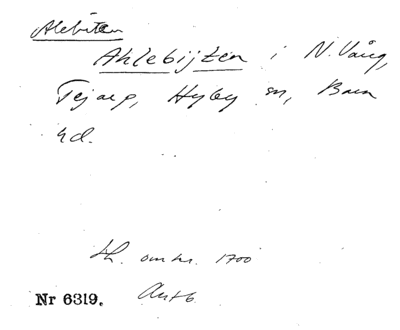 Alebiten
Ahlebijten i N. Vång,
Tejarp, Hyby sn, Bara
hd.
Lh. omkr. 1700
Nr 6319.